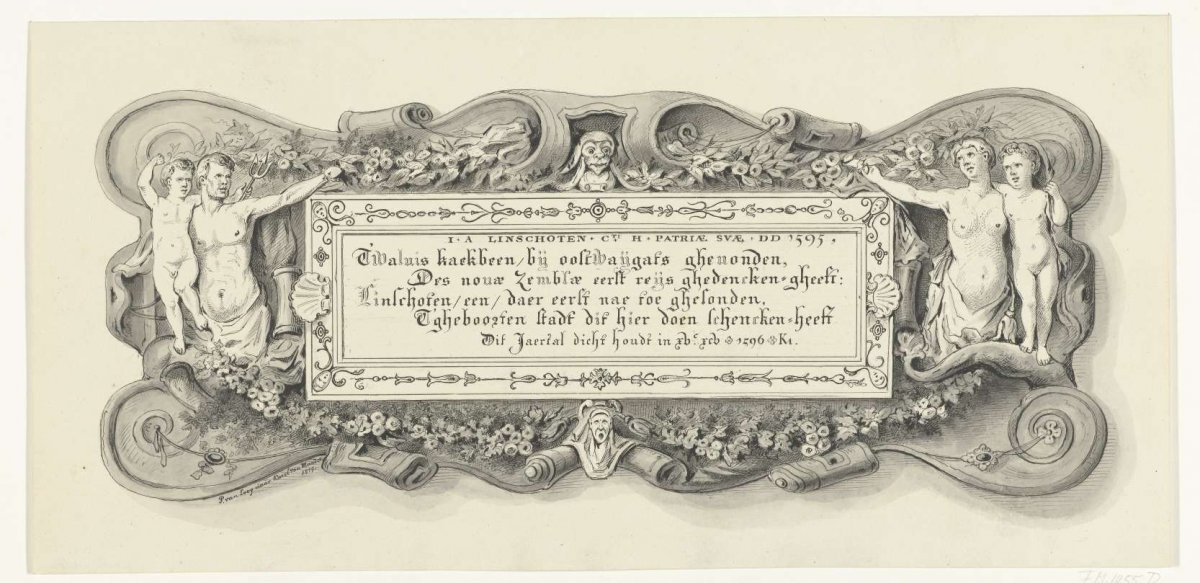 I · A LINSCHOTEN · C^VI H · PATRIÆ SVÆ · DD 1595,
Twaluis kaekbeen / bÿ oostwaÿgats gheuonden,
Des nouæ Zemblæ eerst reÿs ghedencken · gheeft:
Linschoten / een / daer eerst nae toe ghesonden,
Tgheboorten stadt dit hier doen schencken · heeft
Dit Jaertal dicht houdt in xv^c xcv 1596 Kl.
P. van Looy naar Karel van Mander
1879.
F.M. 1055 D